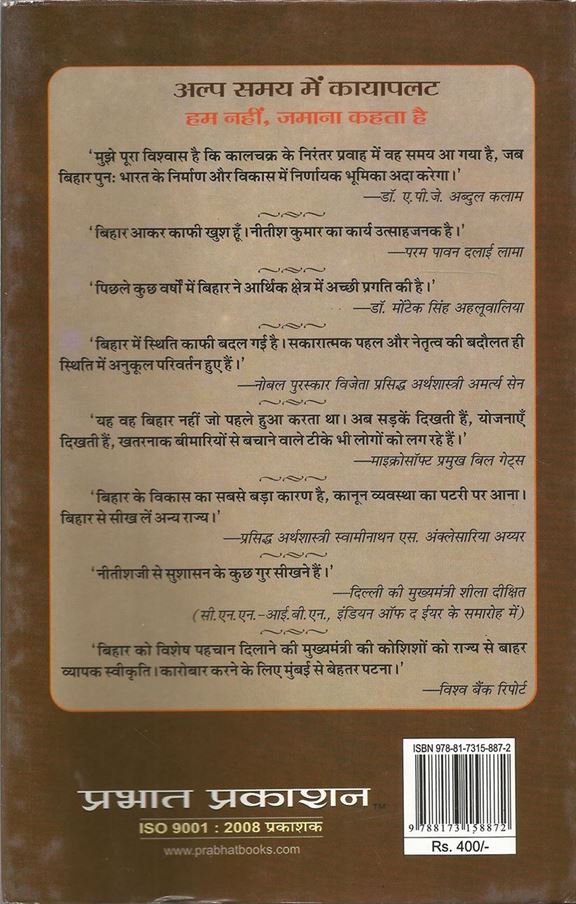 अल्प समय में कायापलट
हम नहीं, जमाना कहता है
‘मुझे पूरा विश्वास है कि कालचक्र के निरंतर प्रवाह में वह समय आ गया है, जब
बिहार पुनः भारत के निर्माण और विकास में निर्णायक भूमिका अदा करेगा।’
—डॉ. ए.पी.जे. अब्दुल कलाम
‘बिहार आकर काफी खुश हूँ। नीतीश कुमार का कार्य उत्साहजनक है।’
—परम पावन दलाई लामा
‘पिछले कुछ वर्षों में बिहार ने आर्थिक क्षेत्र में अच्छी प्रगति की है।’
—डॉ. मोंटेक सिंह अहलूवालिया
‘बिहार में स्थिति काफी बदल गई है। सकारात्मक पहल और नेतृत्व की बदौलत ही
स्थिति में अनुकूल परिवर्तन हुए हैं।’
—नोबल पुरस्कार विजेता प्रसिद्ध अर्थशास्त्री अमर्त्य सेन
‘यह वह बिहार नहीं जो पहले हुआ करता था। अब सड़कें दिखती हैं, योजनाएँ
दिखती हैं, खतरनाक बीमारियों से बचाने वाले टीके भी लोगों को लग रहे हैं।’
—माइक्रोसॉफ्ट प्रमुख बिल गेट्स
‘बिहार के विकास का सबसे बड़ा कारण है, कानून व्यवस्था का पटरी पर आना।
बिहार से सीख लें अन्य राज्य।’
—प्रसिद्ध अर्थशास्त्री स्वामीनाथन एस. अंक्लेसारिया अय्यर
‘नीतीशजी से सुशासन के कुछ गुर सीखने हैं।’
—दिल्ली की मुख्यमंत्री शीला दीक्षित
(सी.एन.एन.-आई.बी.एन., इंडियन ऑफ द ईयर के समारोह में)
‘बिहार को विशेष पहचान दिलाने की मुख्यमंत्री की कोशिशों को राज्य से बाहर
व्यापक स्वीकृति। कारोबार करने के लिए मुंबई से बेहतर पटना।’
—विश्व बैंक रिपोर्ट
ISBN 978-81-7315-887-2
9 788173 158872
Rs. 400/-
प्रभात प्रकाशन™
ISO 9001 : 2008 प्रकाशक
www.prabhatbooks.com